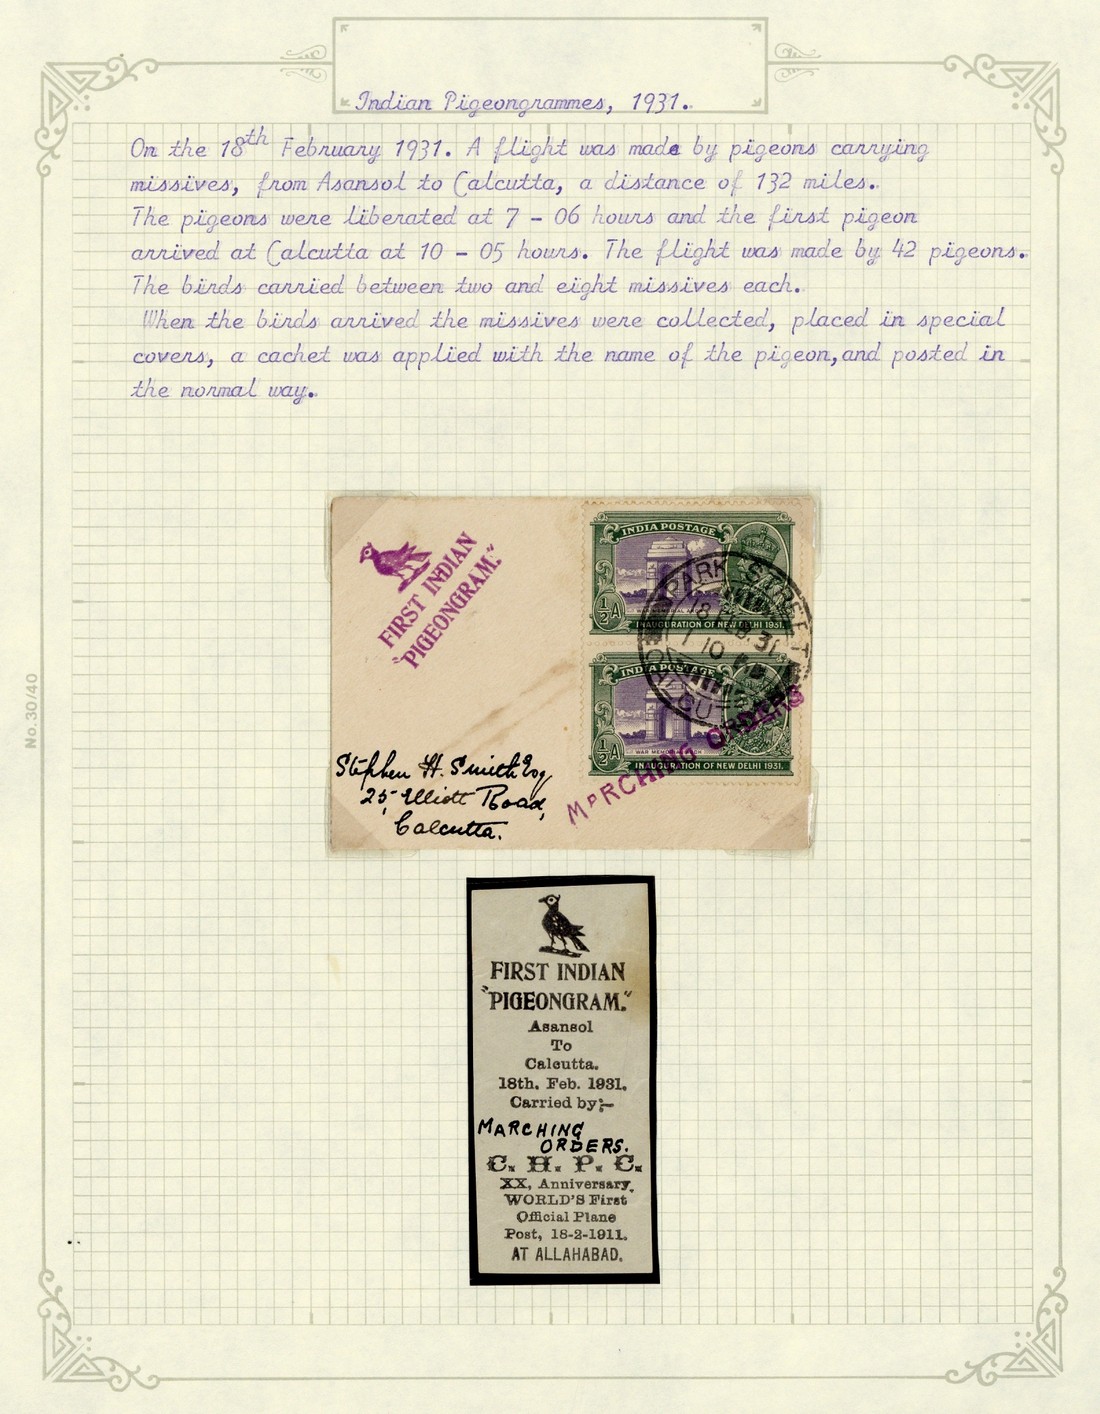 Indian Pigeongrammes, 1931.
On the 18th February 1931. A flight was made by pigeons carrying
missives, from Asansol to Calcutta, a distance of 132 miles.
The pigeons were liberated at 7 - 06 hours and the first pigeon
arrived at Calcutta at 10 - 05 hours. The flight was made by 42 pigeons.
The birds carried between two and eight missives each.
When the birds arrived the missives were collected, placed in special
covers, a cachet was applied with the name of the pigeon, and posted in
the normal way.
No.30/40
FIRST INDIAN
"PIGEONGRAM."
INDIA POSTAGE
½A
INAUGURATION OF NEW DELHI 1931.
PARK STREET
18 FEB. 31
1 10 PM
INDIA POSTAGE
½A
WAR MEMORIAL ARCH
INAUGURATION OF NEW DELHI 1931.
MARCHING ORDERS
Stephen H. Smith Esq
25, Elliott Road,
Calcutta.
FIRST INDIAN
"PIGEONGRAM."
Asansol
To
Calcutta.
18th. Feb. 1931.
Carried by:-
MARCHING
ORDERS.
C. H. P. C.
XX, Anniversary.
WORLD'S First
Official Plane
Post, 18-2-1911.
AT ALLAHABAD.